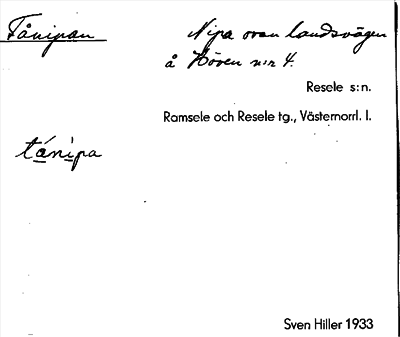 Tånipan
Nipa ovan landsvägen
å Höven n:r 4.
Resele s:n.
Ramsele och Resele tg., Västernorrl. l.
tánipa
Sven Hiller 1933